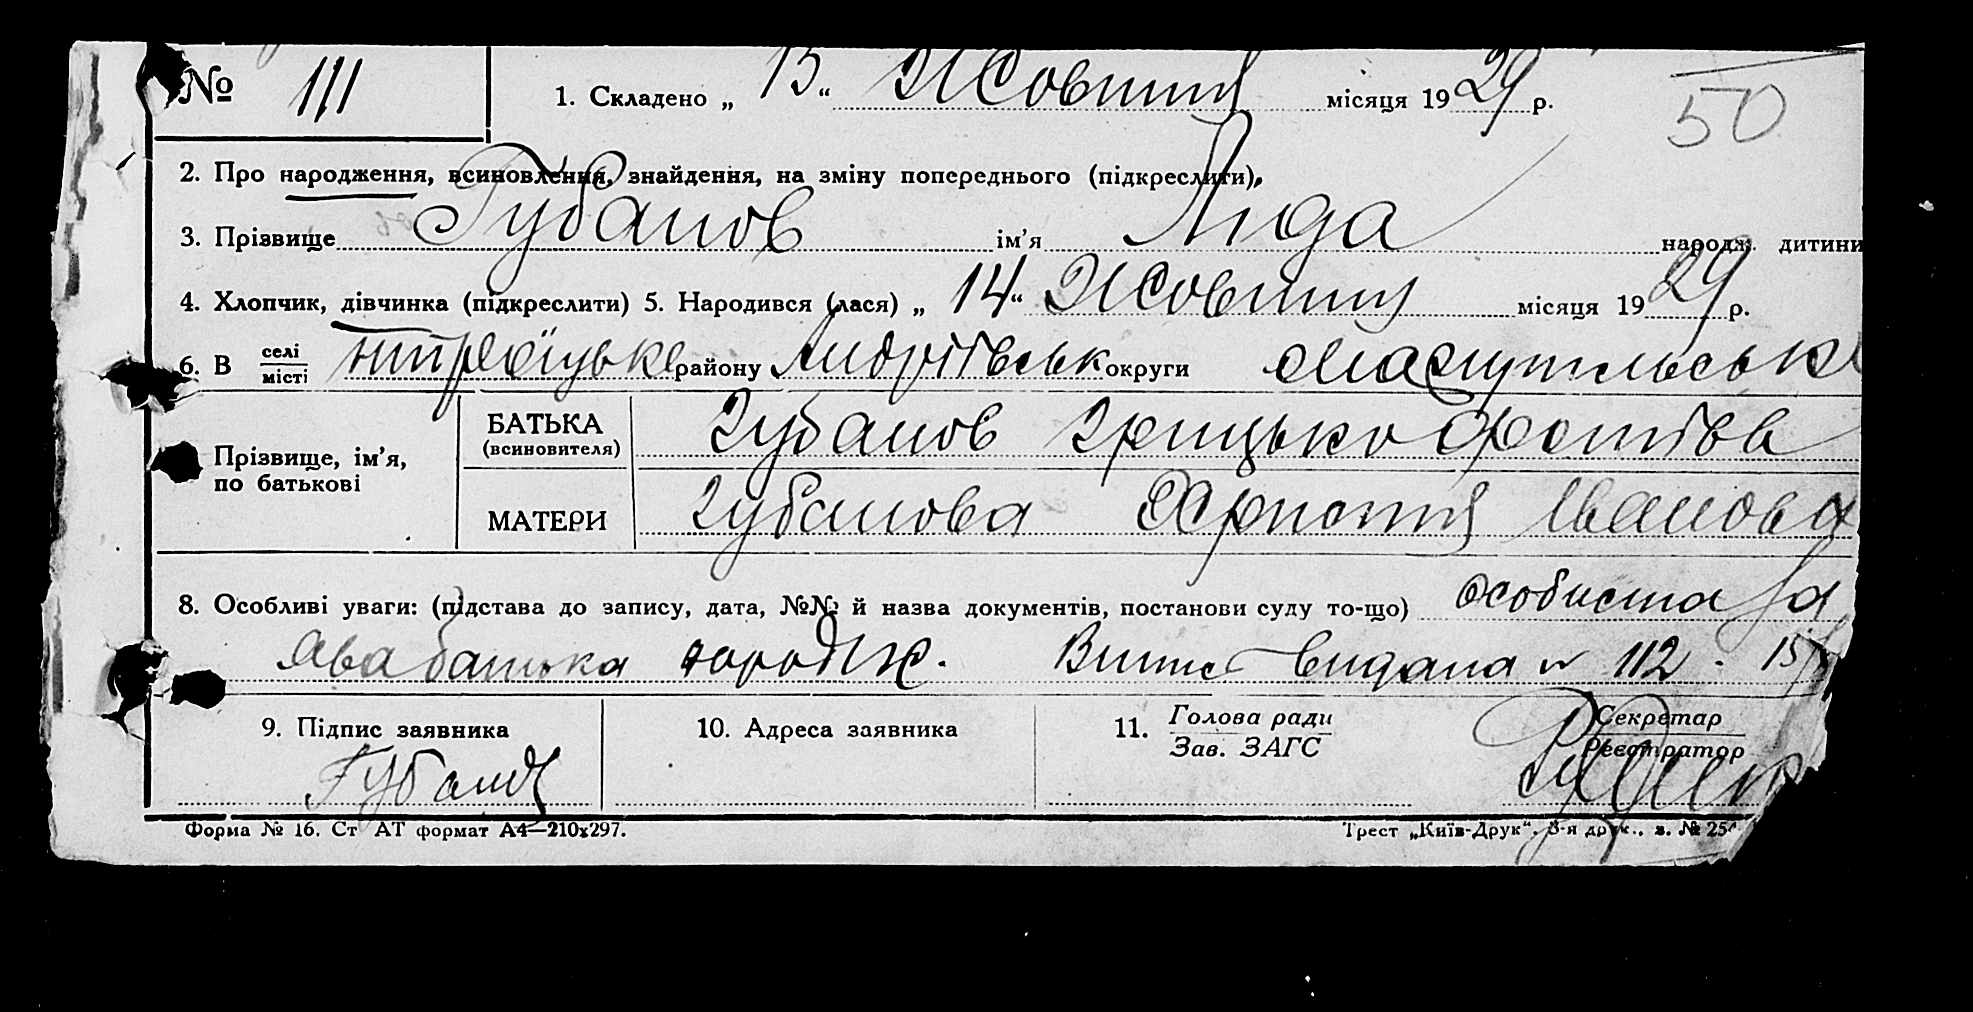 № 111 1. Складено „ 15 “ Жовтня місяця 1929 р. 50
2. Про народження, всиновлення, знайдення, на зміну попереднього (підкреслити),
3. Прізвище Губанов ім’я Ліда народж. дитини
4. Хлопчик, дівчинка (підкреслити) 5. Народився (лася) „ 14 “ Жовтня місяця 1929 р.
6. В селі
місті району Андріївськ округи
Прізвище, ім’я,
по батькові
БАТЬКА
(всиновителя)
Губанов Грицько Фотіев
МАТЕРИ
Губанова Христя Іванова
8. Особливі уваги: (підстава до запису, дата, №№ й назва документів, постанови суду то-що) особиста за
ява батька Випис видана № 112. 15
9. Підпис заявника
Губанов
10. Адреса заявника
11. Голова ради
Зав. ЗАГС
Секретар
Реєстратор
Форма № 16. Ст АТ формат А4—210х297.
Трест „Київ-Друк“. 3-я друк., з. № 254